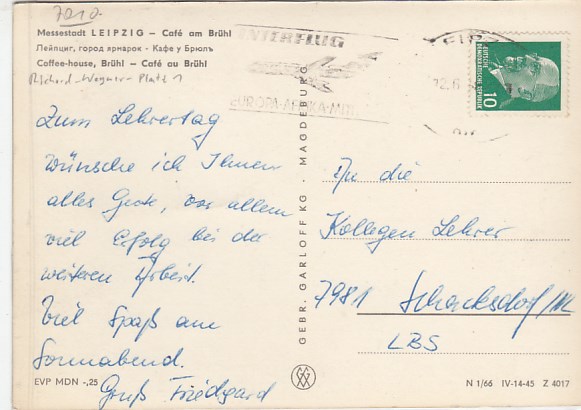 7010.
Messestadt LEIPZIG – Café am Brühl
Лейпциг, город ярмарок - Кафе у Брюль
Coffee-house, Brühl – Café au Brühl
Richard-Wagner-Platz 1
INTERFLUG
EUROPA-AFRIKA-
LEIPZ
DEUTSCHE
DEMOKRATISCHE REPUBLIK
10
Zum Lehrertag
wünsche ich Ihnen
alles Gute, vor allem
viel Erfolg bei der
weiteren Arbeit.
Viel Spaß am
Sonnabend.
Gruß Friedgard
GEBR. GARLOFF KG · MAGDEBURG
An die
Kollegen Lehrer
7981 Schacksdorf/
LBS
EVP MDN -,25
N 1/66 IV-14-45 Z 4017